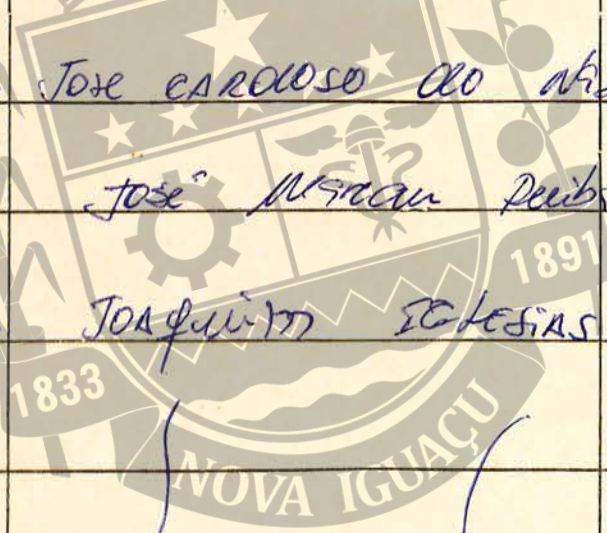 Jose CARDOSO do
José
1891
JOAquim IGLESIAS
1833
NOVA IGUAÇU